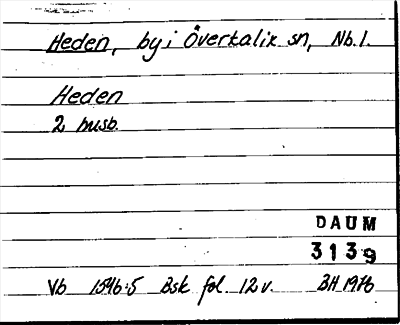 Heden, by i Överkalix sn, Nb.l.
Heden
2 husb.
DAUM
3139
Vb 1546:5 Bsk fol. 12v. BH 1976